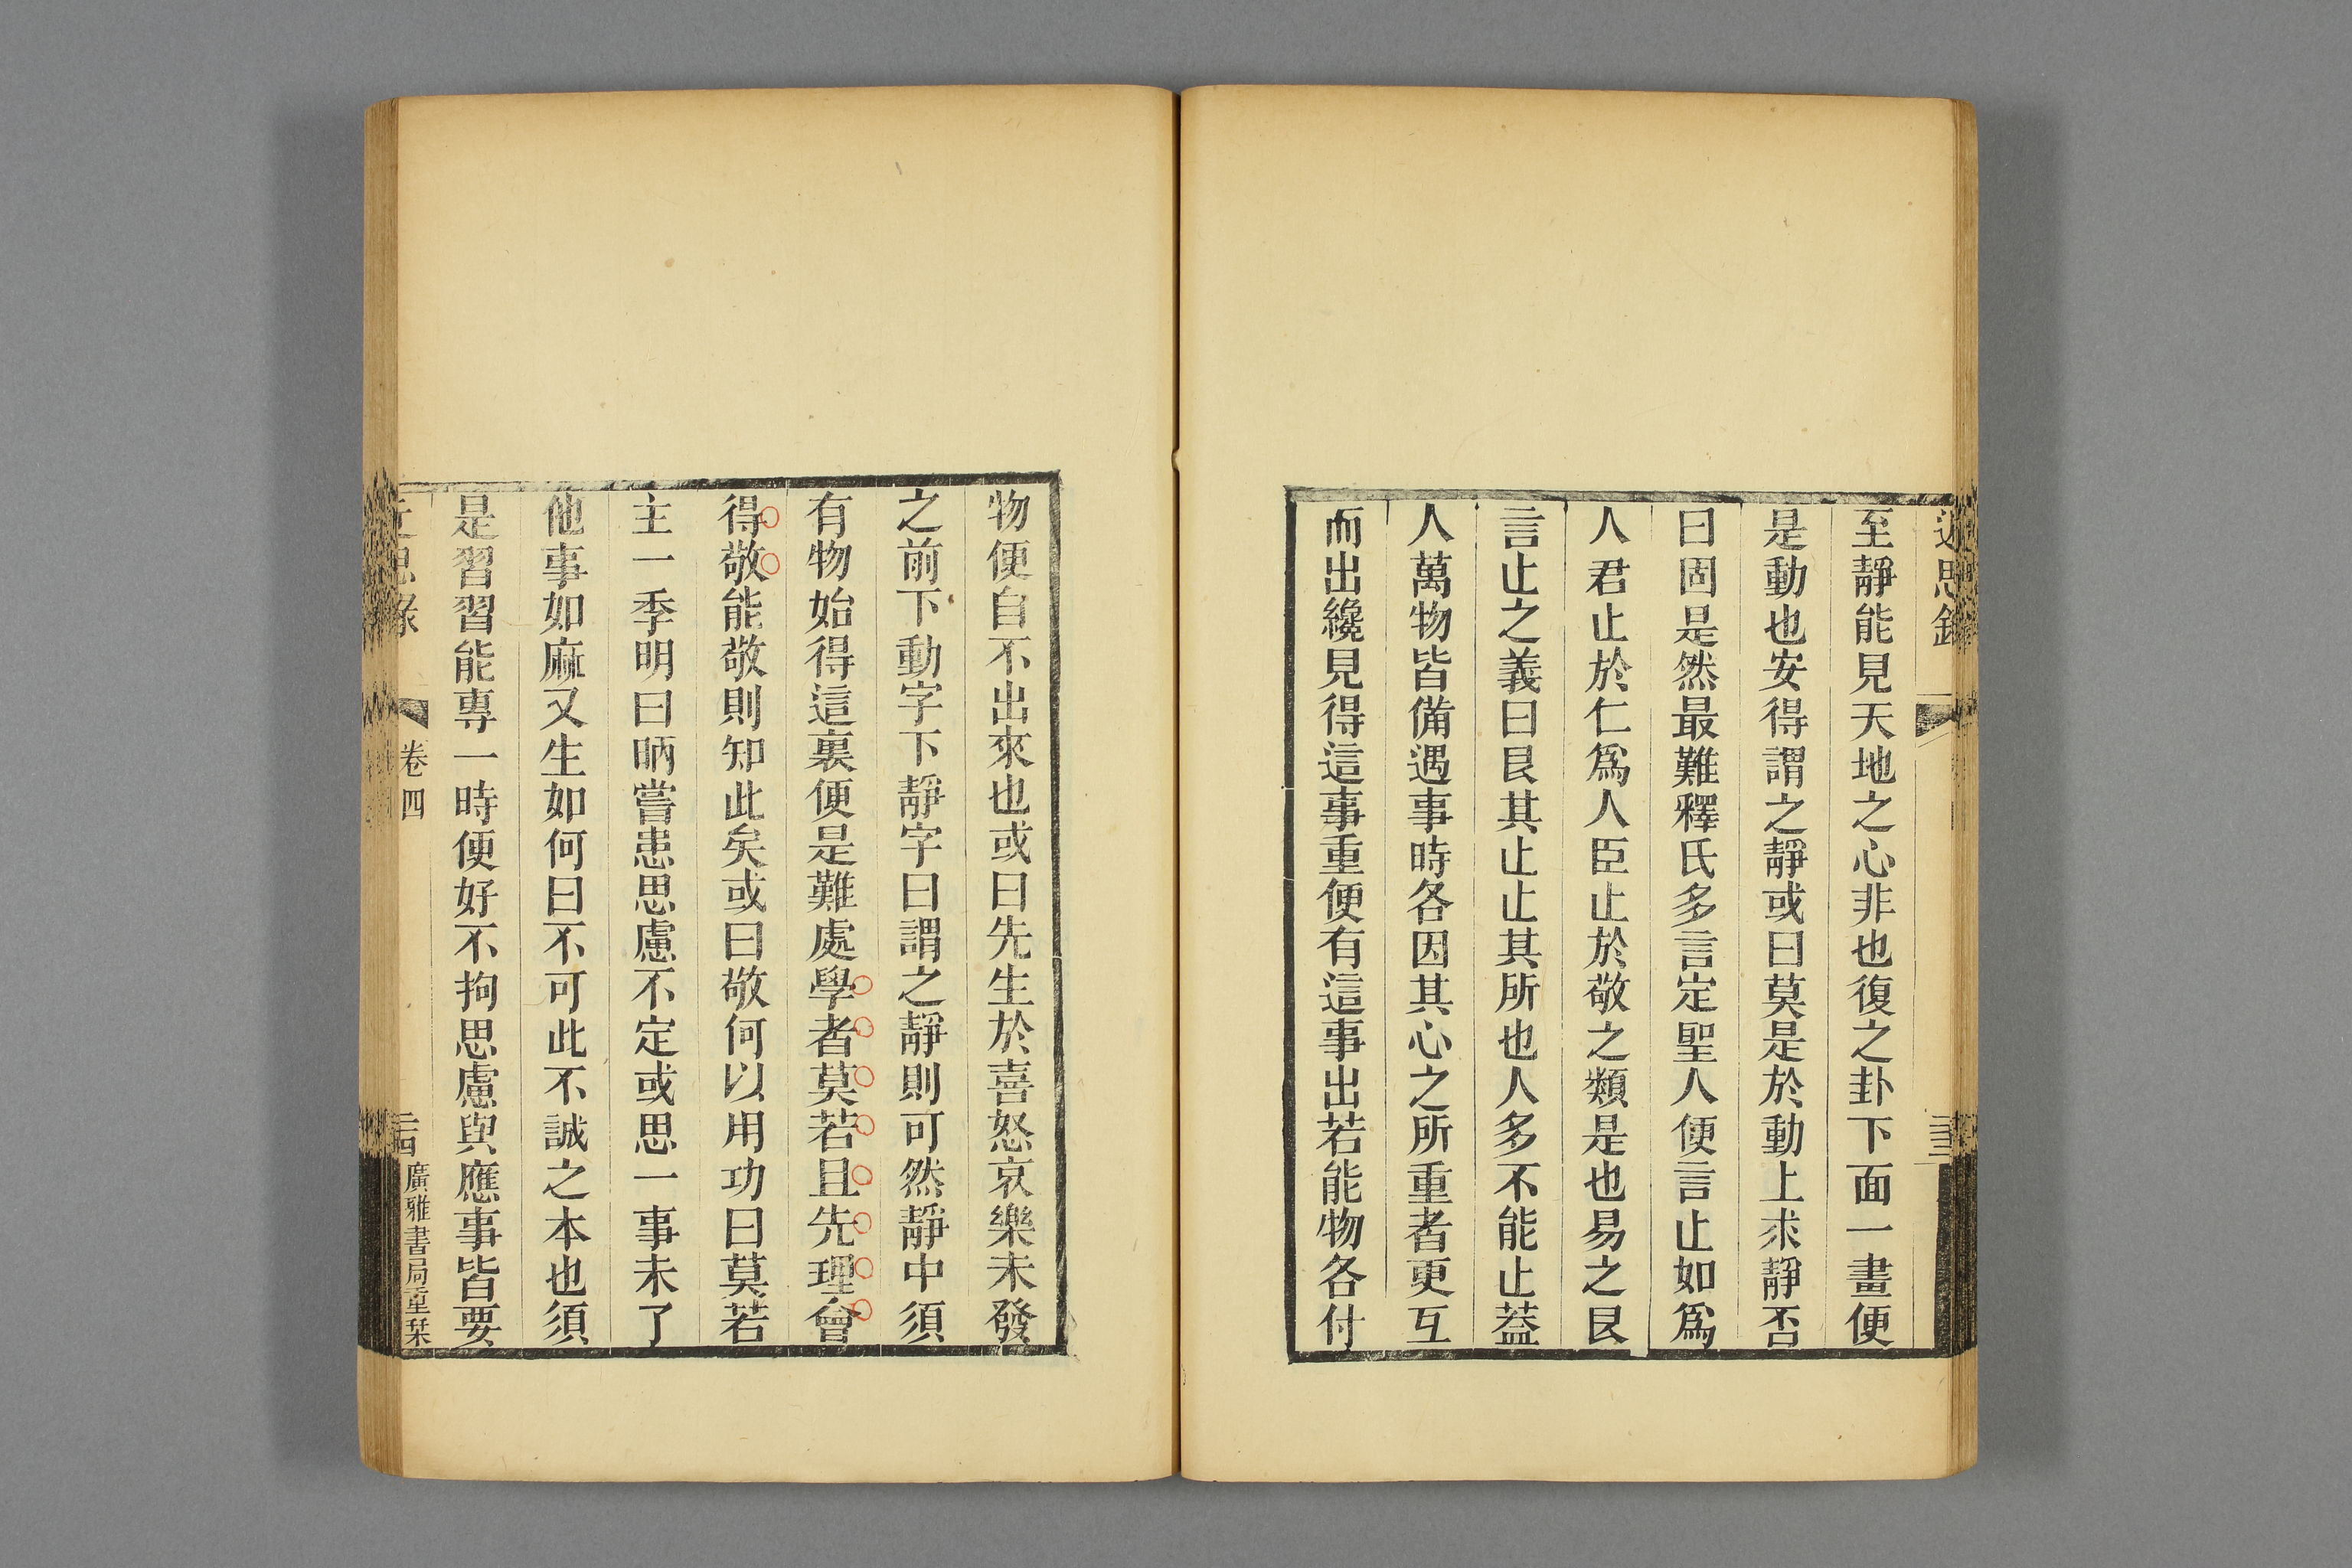 近思錄
至靜能見天地之心非也復之卦下面一畫便
是動也安得謂之靜或曰莫是於動上求靜否
曰固是然最難釋氏多言定聖人便言止如爲
人君止於仁爲人臣止於敬之類是也易之艮
言止之義曰艮其止止其所也人多不能止葢
人萬物皆備遇事時各因其心之所重者更互
而出纔見得這事重便有這事出若能物各付
物便自不出來也或曰先生於喜怒哀樂未發
之前下動字下靜字曰謂之靜則可然靜中須
有物始得這裏便是難處學者莫若且先理會
得敬能敬則知此矣或曰敬何以用功曰莫若
主一季明曰昞嘗患思慮不定或思一事未了
他事如麻又生如何曰不可此不誠之本也須
是習習能專一時便好不拘思慮與應事皆要
近思錄 卷四 廣雅書局重栞